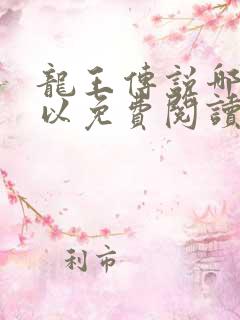 龍王傳說哪
以免費閱讀
利市